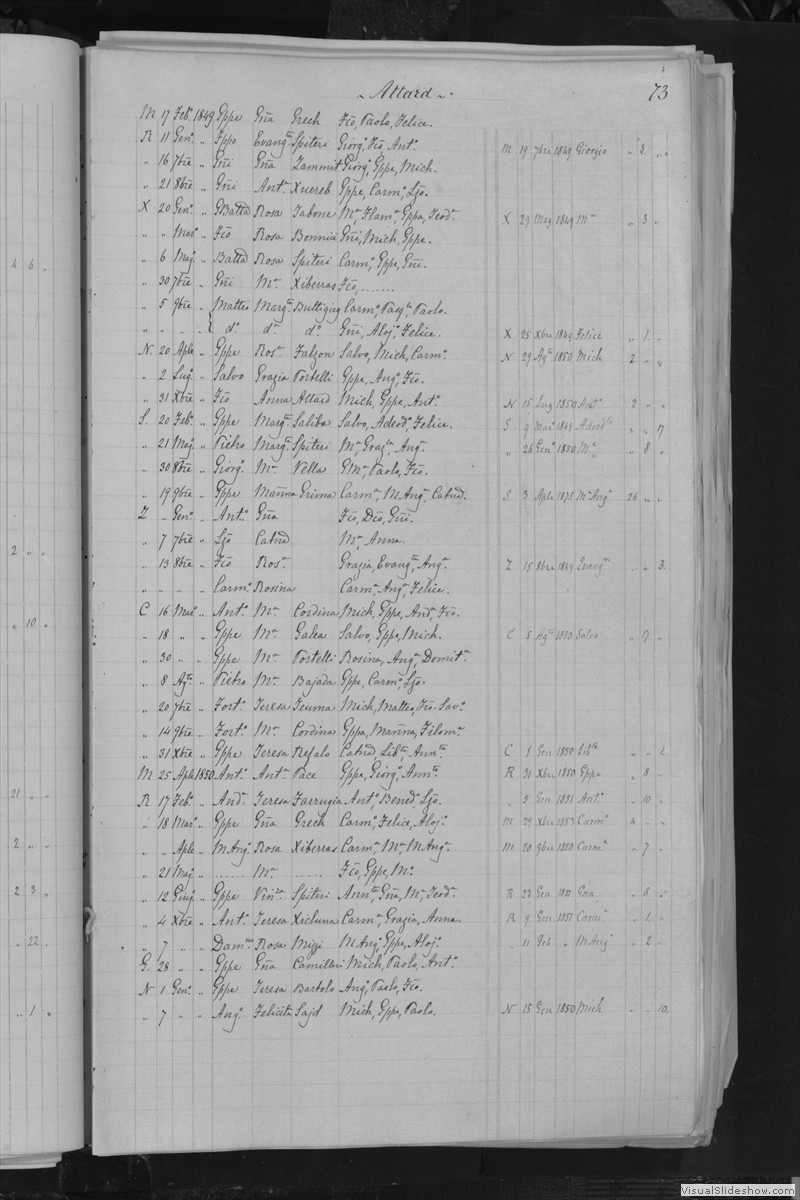 ~ Attard ~
73
M 17 Feb.º 1849 Gppe Gña Grech Fco, Paolo, Felice.
R 11 Genº „ Fppo Evangta Spiteri Giorgº, Fco, Antº.
M 19 7bre 1849 Giorgio „ 3. „
„ 16 7bre „ Gñi Gña Zammit Giorgº, Gppe, Mich.
„ 21 8bre „ Gñi Antª Xuereb Gppe, Carmº, Ljo.
X 20 Genº „ GBatta Rosa Tabone Mª, Flamª, Gppa, Teodª
X 29 Mag 1849 Mª „ 3 „
„ „ Marº „ Fco Rosa Bonnici Gñi, Mich, Gppe.
4 6 „
„ 6 Magº „ Batta Rosa Spiteri Carmº, Gppe, Gñi.
„ 30 7bre „ Gñi Mª Xiberras Fco, .......
„ 5 9bre „ Matteo Margta Buttigieg Carmº, Pasqle, Paolo.
„ „ „ „ dº dª dº Gñi, Alojº, Felice.
X 25 Xbre 1849 Felice „ 1. „
N 20 Aple „ Gppe Rosª Falzon Salvo, Mich, Carmº
N 29 Agto 1850 Mich 2 „ „
„ 2 Lugº „ Salvo Grazia Portelli Gppe, Angº, Fco.
„ 31 Xbre „ Fco Anna Attard Mich, Gppe, Antº.
N 15 Lug 1850 Antº 2 „ „
S. 20 Febº „ Gppe Margta Saliba Salvo, Adeodº, Felice.
S 9 Marº 1849 Adeodto „ „ 7
„ 21 Magº „ Pietro Margta Spiteri Mª, Grazla, Angª
„ 26 Genº 1850 Mª „ 8 „
„ 30 8bre „ Giorgº Mª Vella GMª, Paolo, Fco.
„ 19 9bre „ Gppe Marñna Grima Carmª, M Angª, Catnª.
S 3 Aple 1875 Mª Angª 26 „ „
Z „ Genº „ Antº Gña Fco, Dco, Gñi.
„ 7 7bre „ Ljo Catnª Mª, Anna.
2 „ „
„ 13 8bre „ Fco Rosª Grazia, Evangta, Angª.
Z 15 8bre 1849 Evangta „ „ 3.
„ „ „ „ Carmº Rosina Carmº, Angº, Felice.
C 16 Marº „ Antº Mª Cordina Mich, Gppe, Andª, Fco.
„ 10 „
„ 18 „ „ Gppe Mª Galea Salvo, Gppe, Mich.
C 5 Agto 1850 Salvo „ 17 „
„ 30 „ „ Gppe Mª Portelli Rosina, Angª, Domitª
„ 8 Agto „ Pietro Mª Bajada Gppe, Carmº, Ljo.
„ 20 7bre „ Fortº Teresa Teuma Mich, Matteo, Fco. Savº
„ 14 9bre „ Fortº Mª Cordina Gppa, Marñna, Filomª
„ 31 Xbre „ Gppe Teresa Refalo Catnª, Libta, Annta.
C 1 Gen 1850 Libta „ „ 1.
M 25 Aple 1850 Antº Antª Pace Gppe, Giorgº, Annta.
R 31 Xbre 1850 Gppe „ 8 „
21 „ „
R 17 Febº „ Andª Teresa Farrugia Antº, Benedº, Ljo.
„ 5 Gen 1851 Antº „ 10 „
„ 18 Marº „ Gppe Gña Grech Carmº, Felice, Alojº
M 29 Xbre 1853 Carmº „ „
2 „ „
„ „ Aple „ M Angº Rosa Xiberras Carmª, Mª, M Angª.
M 20 9bre 1850 Carmª „ 7 „
„ 21 Magº „ ...... Mª ...... Fco, Gppe, Mª
2 3 „
„ 12 Giugº „ Gppe Vinzª Spiteri Annta, Gña, Mª, Teodª
R 23 Gen 1851 Gña „ 8 „
„ 4 Xbre „ Antº Teresa Xicluna Carmª, Grazia, Anna.
R 9 Gen 1851 Carmª „ 1. „
„ 22 „
„ 7 „ „ Damno Rosa Mizzi M Angº, Gppe, Alojº.
„ 11 Feb „ M Angº „ 2 „
G. 28 „ „ Gppe Gña Camilleri Mich, Paolo, Antº.
N 1 Genº „ Gppe Teresa Bartolo Angº, Paolo, Fco.
„ 1 „
„ 7 „ „ Angº Felicita Sajd Mich, Gppe, Paolo.
N 15 Gen 1850 Mich „ „ 10.
VisualSlideshow.com